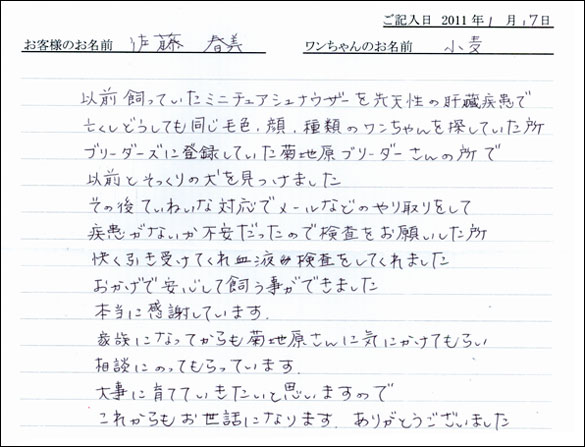 ご記入日 2011年1月17日
お客様のお名前 佐藤 春美 ワンちゃんのお名前 小麦
以前飼っていたミニチュアシュナウザーを先天性の肝臓疾患で
亡くしどうしても同じ毛色、顔、種類のワンちゃんを探していた所
ブリーダーズに登録していた菊地原ブリーダーさんの所で
以前とそっくりの犬を見つけました
その後ていねいな対応でメールなどのやり取りをして
疾患がないか不安だったので検査をお願いした所
快く引き受けてくれ血液検査をしてくれました
おかげで安心して飼う事ができました
本当に感謝しています.
家族になってからも菊地原さんに気にかけてもらい
相談にのってもらっています.
大事に育てていきたいと思いますので
これからもお世話になります. ありがとうございました